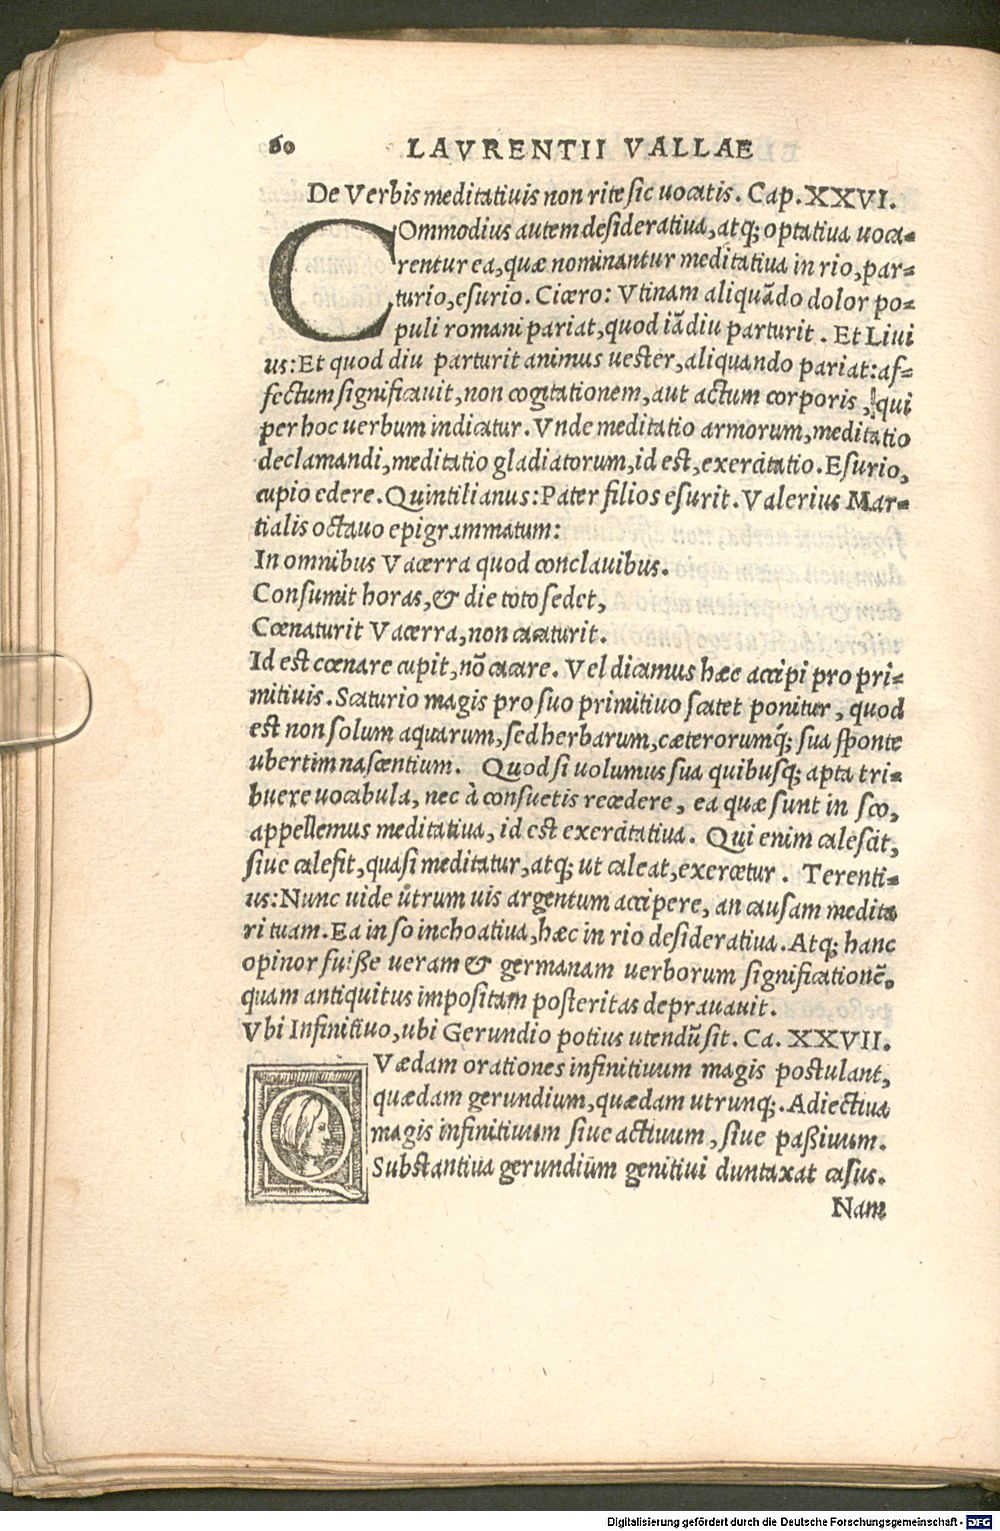 60 LAVRENTII VALLAE
De Verbis meditatiuis non rite sic uocatis. Cap. XXVI.
COmmodius autem desideratiua, atq; optatiua uoca-
rentur ea, quæ nominantur meditatiua in rio, par-
turio, esurio. Cicero: Vtinam aliquãdo dolor po-
puli romani pariat, quod iã diu parturit. Et Liui
us: Et quod diu parturit animus uester, aliquando pariat: af-
fectum significauit, non cogitationem, aut actum corporis, qui
per hoc uerbum indicatur. Vnde meditatio armorum, meditatio
declamandi, meditatio gladiatorum, id est, exercitatio. Esurio,
cupio edere. Quintilianus: Pater filios esurit. Valerius Mar-
tialis octauo epigrammatum:
In omnibus Vacerra quod conclauibus.
Consumit horas, & die toto sedet,
Cœnaturit Vacerra, non cacaturit.
Id est cœnare cupit, nõ cacare. Vel dicamus hæc accipi pro pri-
mitiuis. Scaturio magis pro suo primitiuo scatet ponitur, quod
est non solum aquarum, sed herbarum, cæterorumq́; sua sponte
ubertim nascentium. Quod si uolumus sua quibusq; apta tri-
buere uocabula, nec à consuetis recedere, ea quæ sunt in sco,
appellemus meditatiua, id est exercitatiua. Qui enim calescit,
siue calefit, quasi meditatur, atq; ut caleat, exercetur. Terenti-
us: Nunc uide ůtrum uis argentum accipere, an causam medita
ri tuam. Ea in so inchoatiua, hæc in rio desideratiua. Atq; hanc
opinor fuiße ueram & germanam uerborum significationẽ.
quam antiquitus impositam posteritas deprauauit.
Vbi Infinitiuo, ubi Gerundio potius utendũ sit. Ca. XXVII.
QVædam orationes infinitiuum magis postulant,
quædam gerundium, quædam utrunq;. Adiectiua
magis infinitiuum siue actiuum, siue paßiuum.
Substantiua gerundium genitiui duntaxat casus.
Nam
Digitalisierung gefördert durch die Deutsche Forschungsgemeinschaft - DFG